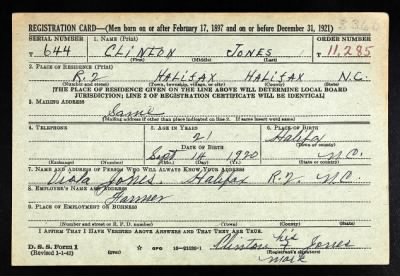 REGISTRATION CARD—(Men born on or after February 17, 1897 and on or before December 31, 1921)
SERIAL NUMBER 1. NAME (Print) ORDER NUMBER
T 644 CLINTON JONES 11,285
(First) (Middle) (Last)
2. PLACE OF RESIDENCE (Print)
R.2 HALIFAX HALIFAX N.C.
(Number and street) (Town, township, village, or city) (County) (State)
[THE PLACE OF RESIDENCE GIVEN ON THE LINE ABOVE WILL DETERMINE LOCAL BOARD
JURISDICTION; LINE 2 OF REGISTRATION CERTIFICATE WILL BE IDENTICAL]
3. MAILING ADDRESS
Same
[Mailing address if other than place indicated on line 2. If same insert word same]
4. TELEPHONE 5. AGE IN YEARS 6. PLACE OF BIRTH
21 Halifax
DATE OF BIRTH (Town or county)
Sept 14 1920 N.C.
(Exchange) (Number) (Mo.) (Day) (Yr.) (State or country)
7. NAME AND ADDRESS OF PERSON WHO WILL ALWAYS KNOW YOUR ADDRESS
Viola Jones, Halifax R.2, N.C.
8. EMPLOYER'S NAME AND ADDRESS
Farmer
9. PLACE OF EMPLOYMENT OR BUSINESS
(Number and street or R. F. D. number) (Town) (County) (State)
I AFFIRM THAT I HAVE VERIFIED ABOVE ANSWERS AND THAT THEY ARE TRUE.
D. S. S. Form 1
(Revised 1-1-42) GPO 16—21630-1
Clinton his Jones
(Registrant's signature)
mark